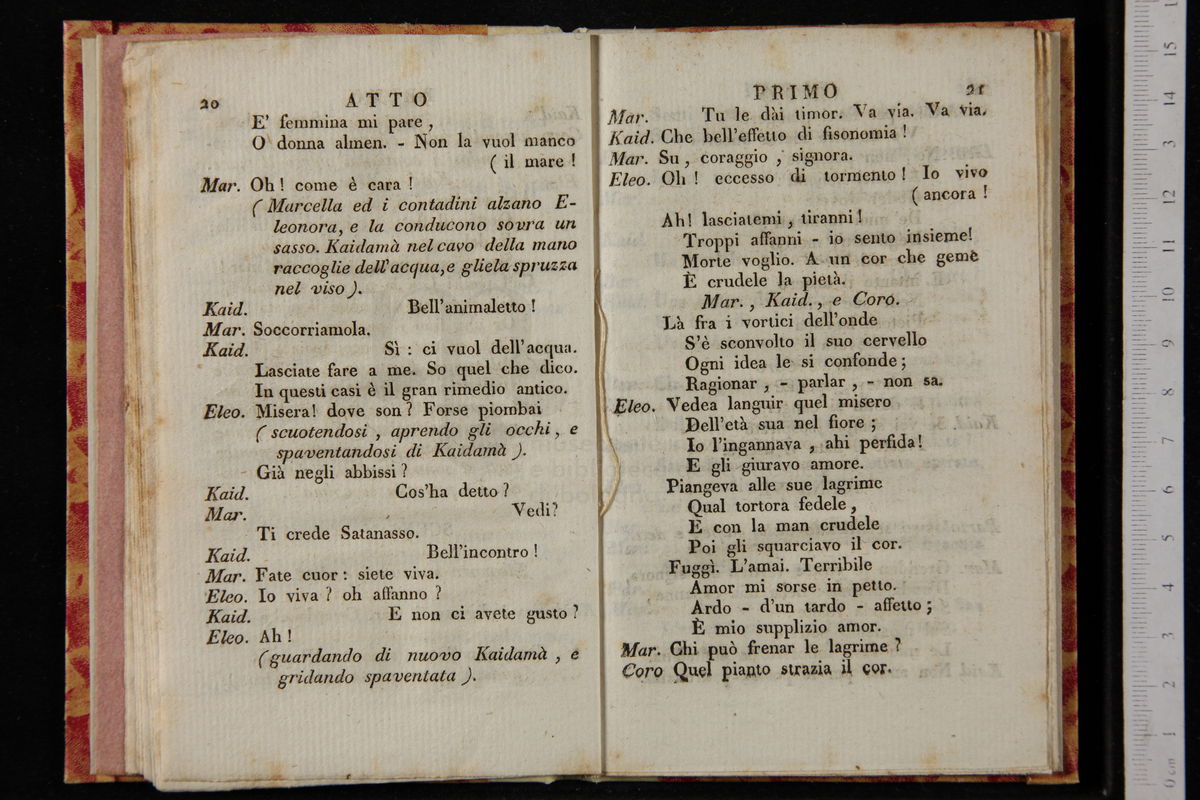 20 ATTO
E' femmina mi pare ,
O donna almen. - Non la vuol manco
( il mare !
Mar. Oh ! come è cara !
( Marcella ed i contadini alzano E-
leonora, e la conducono sovra un
sasso. Kaidamà nel cavo della mano
raccoglie dell'acqua, e gliela spruzza
nel viso ).
Kaid. Bell'animaletto !
Mar. Soccorriamola.
Kaid. Sì : ci vuol dell'acqua.
Lasciate fare a me. So quel che dico.
In questi casi è il gran rimedio antico.
Eleo. Misera! dove son ? Forse piombai
( scuotendosi , aprendo gli occhi, e
spaventandosi di Kaidamà ).
Già negli abbissi ?
Kaid. Cos'ha detto ?
Mar. Vedi?
Ti crede Satanasso.
Kaid. Bell'incontro !
Mar. Fate cuor : siete viva.
Eleo. Io viva ? oh affanno ?
Kaid. E non ci avete gusto ?
Eleo. Ah !
( guardando di nuovo Kaidamà , e
gridando spaventata ).
PRIMO 21
Mar. Tu le dài timor. Va via. Va via.
Kaid. Che bell'effetto di fisonomia !
Mar. Su , coraggio , signora.
Eleo. Oh ! eccesso di tormento ! Io vivo
( ancora !
Ah! lasciatemi , tiranni !
Troppi affanni - io sento insieme!
Morte voglio. A un cor che geme
È crudele la pietà.
Mar. , Kaid. , e Coro.
Là fra i vortici dell'onde
S'è sconvolto il suo cervello
Ogni idea le si confonde ;
Ragionar , - parlar , - non sa.
Eleo. Vedea languir quel misero
Dell'età sua nel fiore ;
Io l'ingannava , ahi perfida!
E gli giuravo amore.
Piangeva alle sue lagrime
Qual tortora fedele ,
E con la man crudele
Poi gli squarciavo il cor.
Fuggì. L'amai. Terribile
Amor mi sorse in petto.
Ardo - d'un tardo - affetto ;
È mio supplizio amor.
Mar. Chi può frenar le lagrime ?
Coro Quel pianto strazia il cor.
0 cm 1 2 3 4 5 6 7 8 9 10 11 12 13 14 15